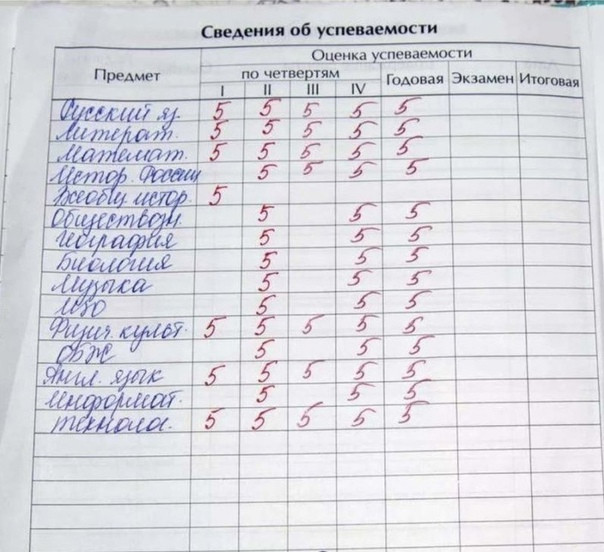 Сведения об успеваемости
Предмет Оценка успеваемости
по четвертям Годовая Экзамен Итоговая
I II III IV
Русский яз. 5 5 5 5 5
Литерат. 5 5 5 5 5
Математ. 5 5 5 5 5
Истор. России 5 5 5 5
Всеобщ истор. 5
Обществозн. 5 5 5
География 5 5 5
Биология 5 5 5
Музыка 5 5 5
ИЗО 5 5 5
Физич. культ. 5 5 5 5 5
ОБЖ 5 5 5
Англ. язык 5 5 5 5 5
Информат. 5 5 5
Технолог. 5 5 5 5 5